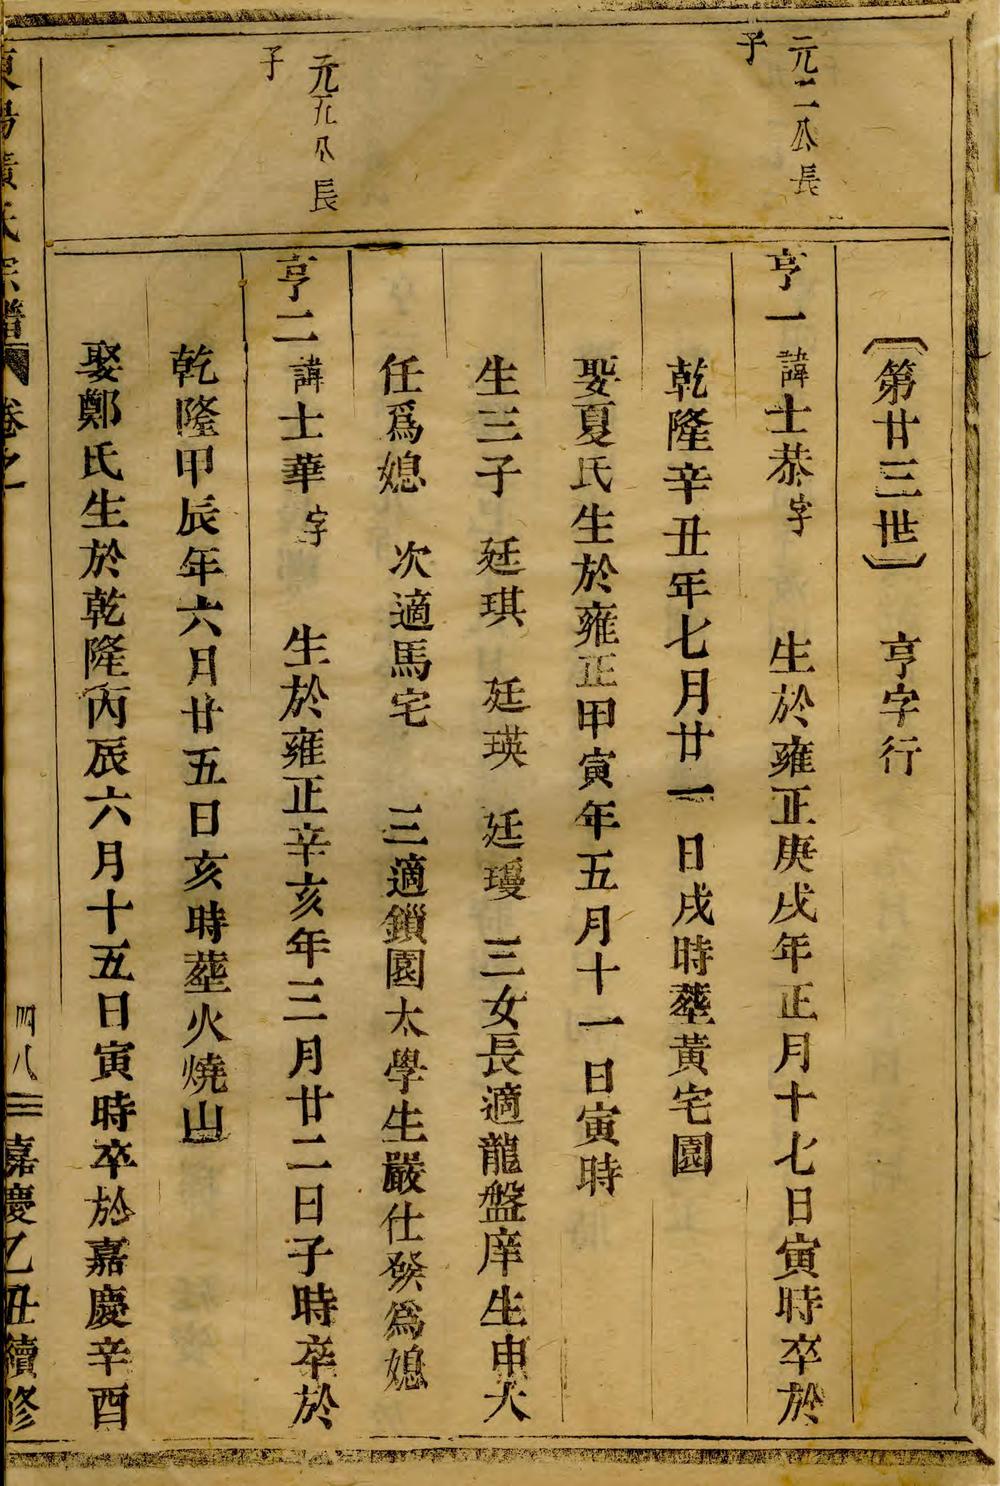 〔第廿三世〕 亨字行
元二公長
子
亨一諱士恭字 生於雍正庚戌年正月十七日寅時卒於
乾隆辛丑年七月廿一日戌時塟黃宅園
娶夏氏生於雍正甲寅年五月十一日寅時
生三子 廷琪 廷瑛 廷璦 三女長適龍盤庠生申大
任爲媳 次適馬宅 三適鎖園太學生嚴仕發爲媳
元五公長
子
亨二諱士華字 生於雍正辛亥年三月廿二日子時卒於
乾隆甲辰年六月廿五日亥時塟火燒山
娶鄭氏生於乾隆丙辰六月十五日寅時卒於嘉慶辛酉
東陽黃氏宗譜 卷之 四八 嘉慶乙丑續修